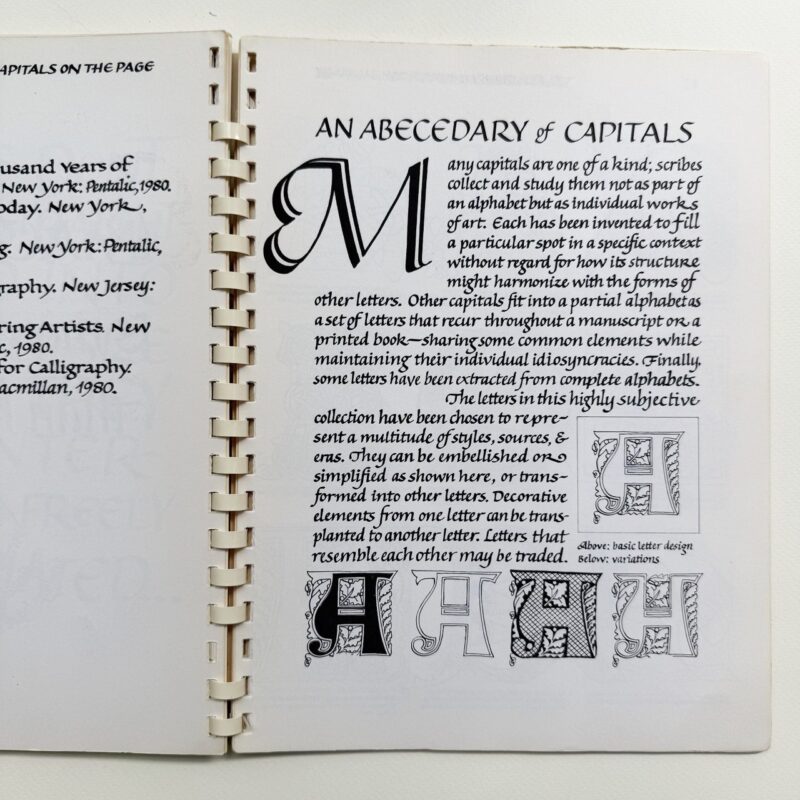 APITALS ON THE PAGE
ousand Years of
New York: Pentalic, 1980.
oday. New York,
g. New York: Pentalic,
graphy. New Jersey:
ring Artists. New
c, 1980.
for Calligraphy.
acmillan, 1980.
AN ABECEDARY of CAPITALS
Many capitals are one of a kind; scribes
collect and study them not as part of
an alphabet but as individual works
of art. Each has been invented to fill
a particular spot in a specific context
without regard for how its structure
might harmonize with the forms of
other letters. Other capitals fit into a partial alphabet as
a set of letters that recur throughout a manuscript or a
printed book—sharing some common elements while
maintaining their individual idiosyncracies. Finally,
some letters have been extracted from complete alphabets.
The letters in this highly subjective
collection have been chosen to repre-
sent a multitude of styles, sources, &
eras. They can be embellished or
simplified as shown here, or trans-
formed into other letters. Decorative
elements from one letter can be trans-
planted to another letter. Letters that
resemble each other may be traded.
A
Above: basic letter design
Below: variations
A A A A